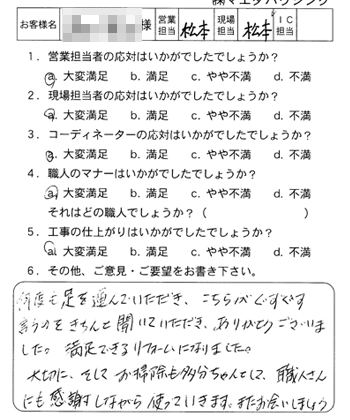 ㈱マエダハウジング
お客様名 様 営業担当 松本 現場担当 松本 IC担当
1．営業担当者の応対はいかがでしたでしょうか？
a. 大変満足 b. 満足 c. やや不満 d. 不満
2．現場担当者の応対はいかがでしたでしょうか？
a. 大変満足 b. 満足 c. やや不満 d. 不満
3．コーディネーターの応対はいかがでしたでしょうか？
a. 大変満足 b. 満足 c. やや不満 d. 不満
4．職人のマナーはいかがでしたでしょうか？
a. 大変満足 b. 満足 c. やや不満 d. 不満
それはどの職人でしょうか？（ ）
5．工事の仕上がりはいかがでしたでしょうか？
a. 大変満足 b. 満足 c. やや不満 d. 不満
6．その他、ご意見・ご要望をお書き下さい。
何度も足を運んでいただき、こちらがぐずぐず
言うのをきちんと聞いていただき、ありがとうございま
した。満足できるリフォームになりました。
大切に、そしてお掃除も多分ちゃんとして、職人さん
にも感謝しながら使っていきます。またお会いしましょう